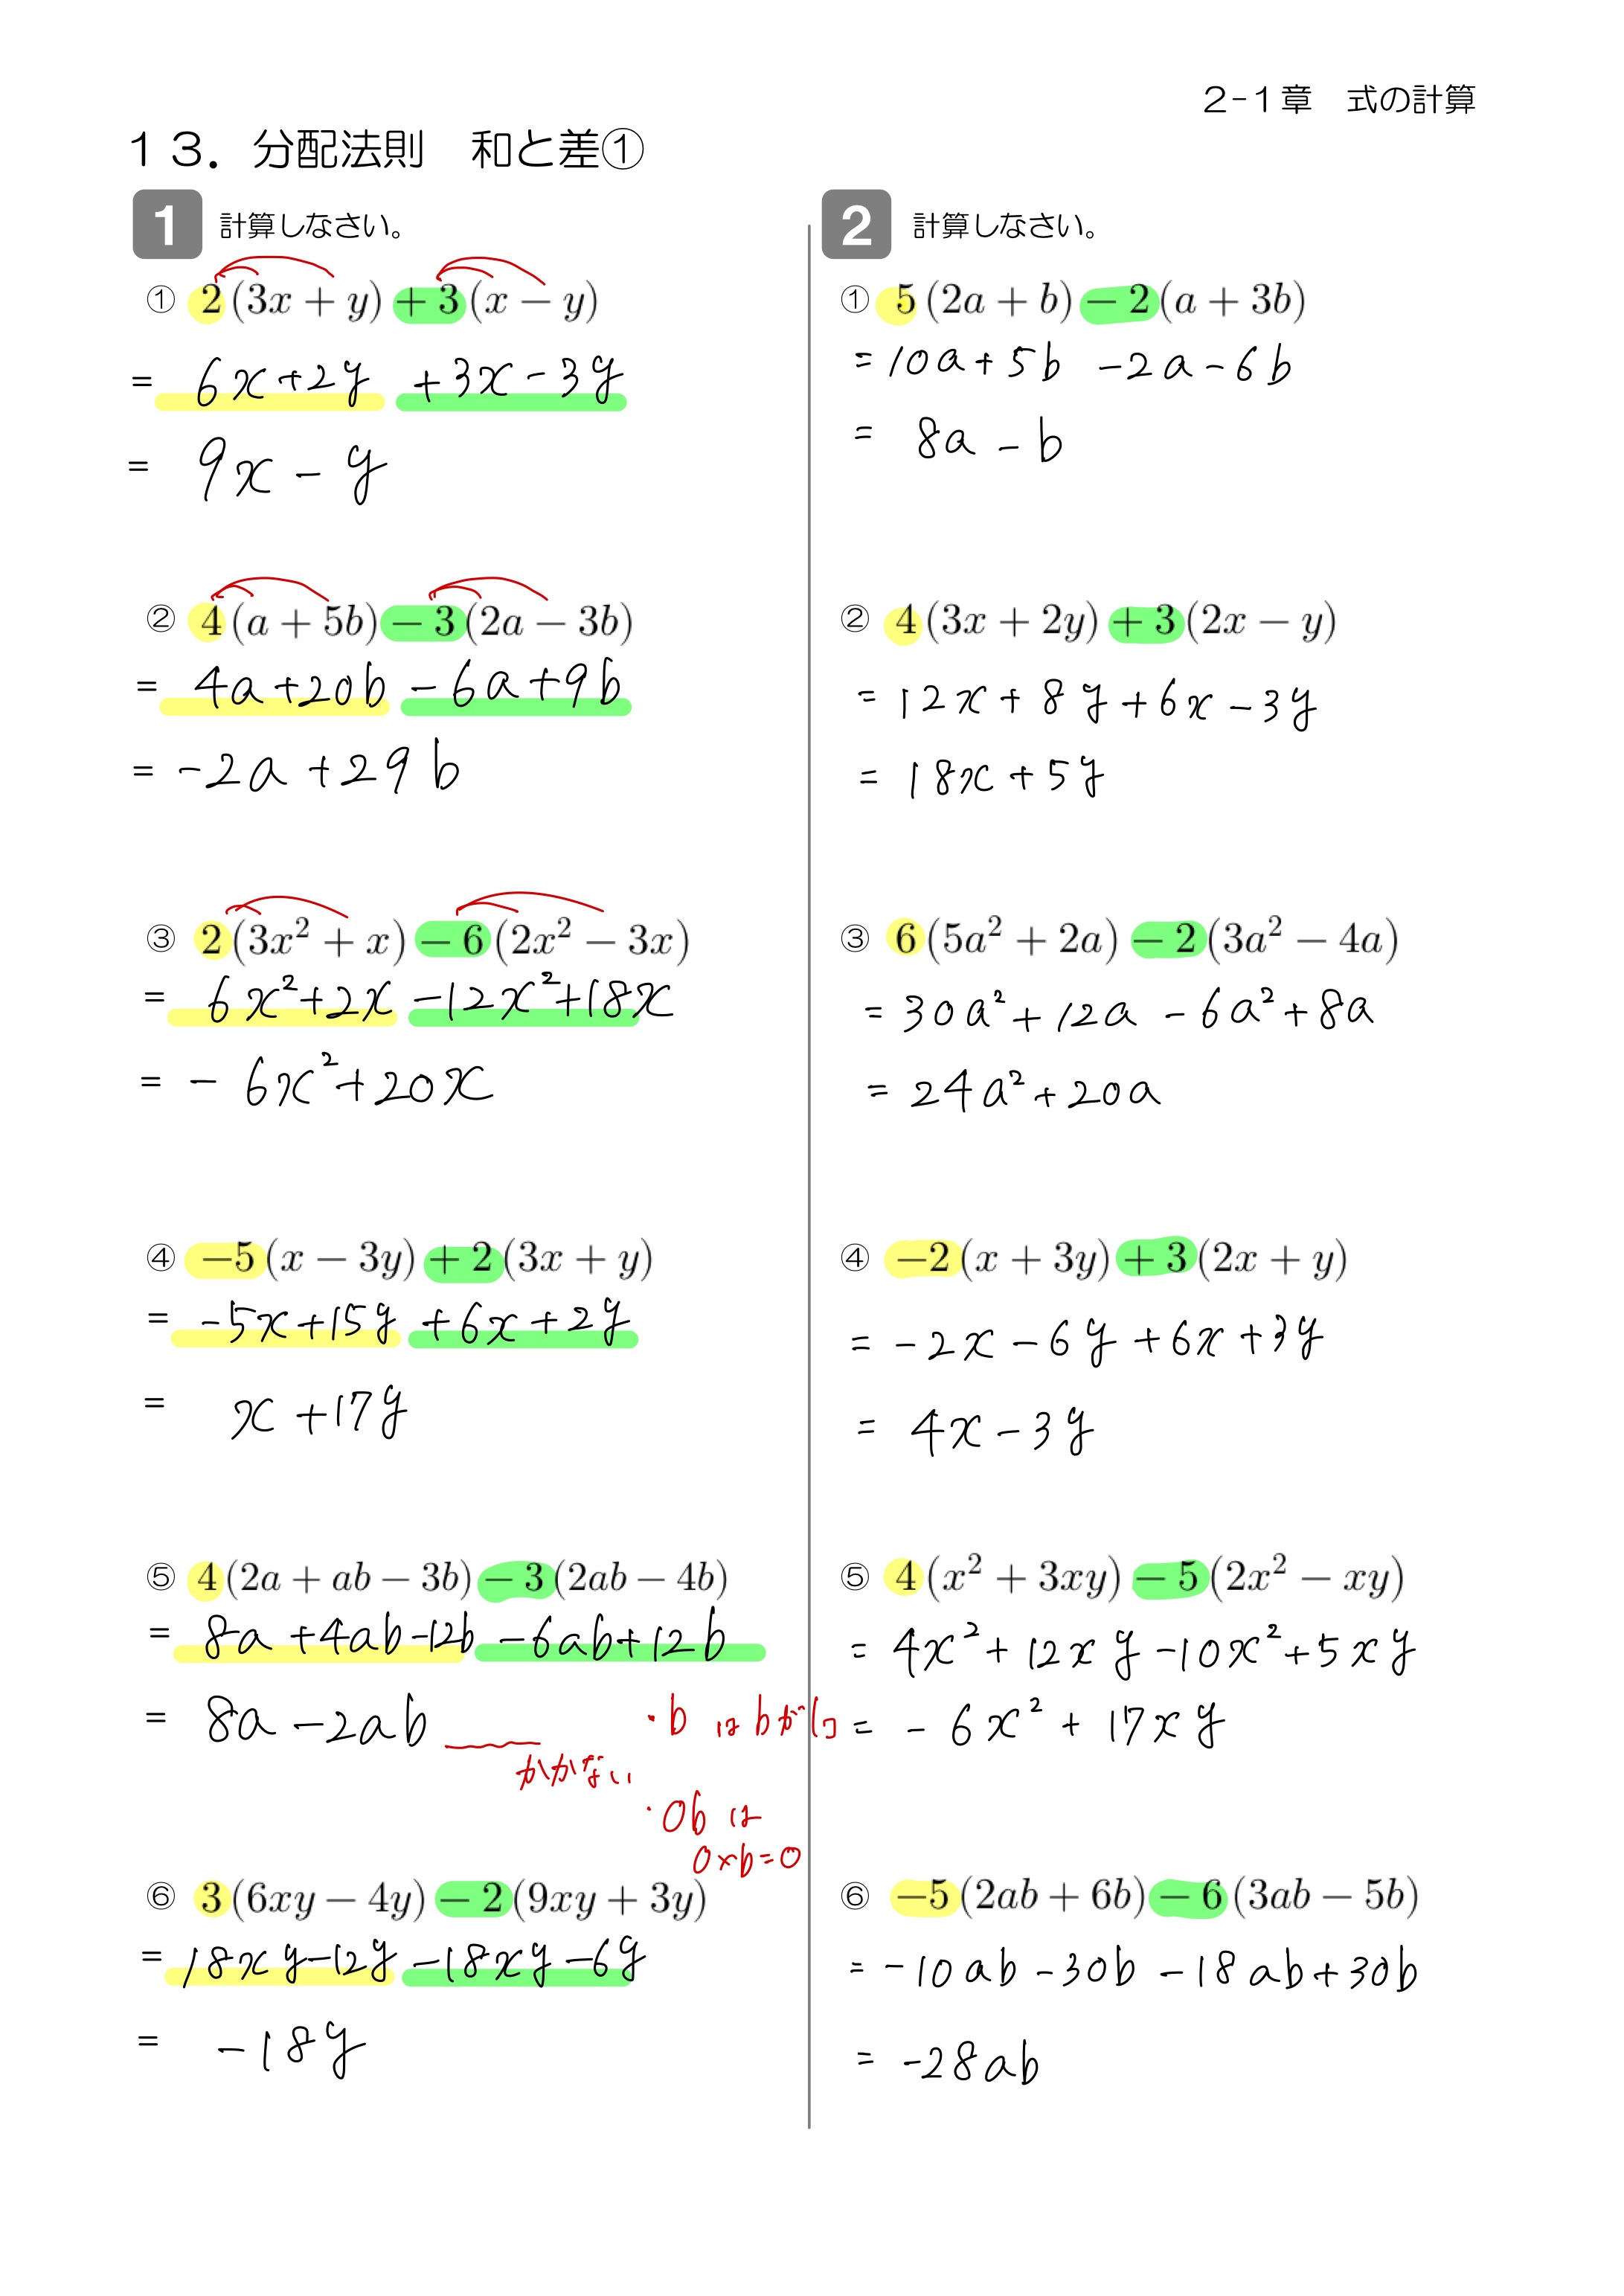 2-1章　式の計算
13．分配法則　和と差①
1 計算しなさい。
① 2(3x + y) + 3(x − y)
= 6x+2y +3x-3y
= 9x - y
② 4(a + 5b) − 3(2a − 3b)
= 4a+20b -6a+9b
= -2a+29b
③ 2(3x² + x) − 6(2x² − 3x)
= 6x²+2x -12x²+18x
= -6x²+20x
④ −5(x − 3y) + 2(3x + y)
= -5x+15y +6x+2y
= x+17y
⑤ 4(2a + ab − 3b) − 3(2ab − 4b)
= 8a+4ab-12b -6ab+12b
= 8a-2ab
かかない
・b は bが1コ
・0b は
0×b=0
⑥ 3(6xy − 4y) − 2(9xy + 3y)
= 18xy-12y -18xy-6y
= -18y
2 計算しなさい。
① 5(2a + b) − 2(a + 3b)
= 10a+5b -2a-6b
= 8a-b
② 4(3x + 2y) + 3(2x − y)
= 12x+8y+6x-3y
= 18x+5y
③ 6(5a² + 2a) − 2(3a² − 4a)
= 30a²+12a -6a²+8a
= 24a²+20a
④ −2(x + 3y) + 3(2x + y)
= -2x-6y+6x+3y
= 4x-3y
⑤ 4(x² + 3xy) − 5(2x² − xy)
= 4x²+12xy-10x²+5xy
= -6x²+17xy
⑥ −5(2ab + 6b) − 6(3ab − 5b)
= -10ab-30b -18ab+30b
= -28ab